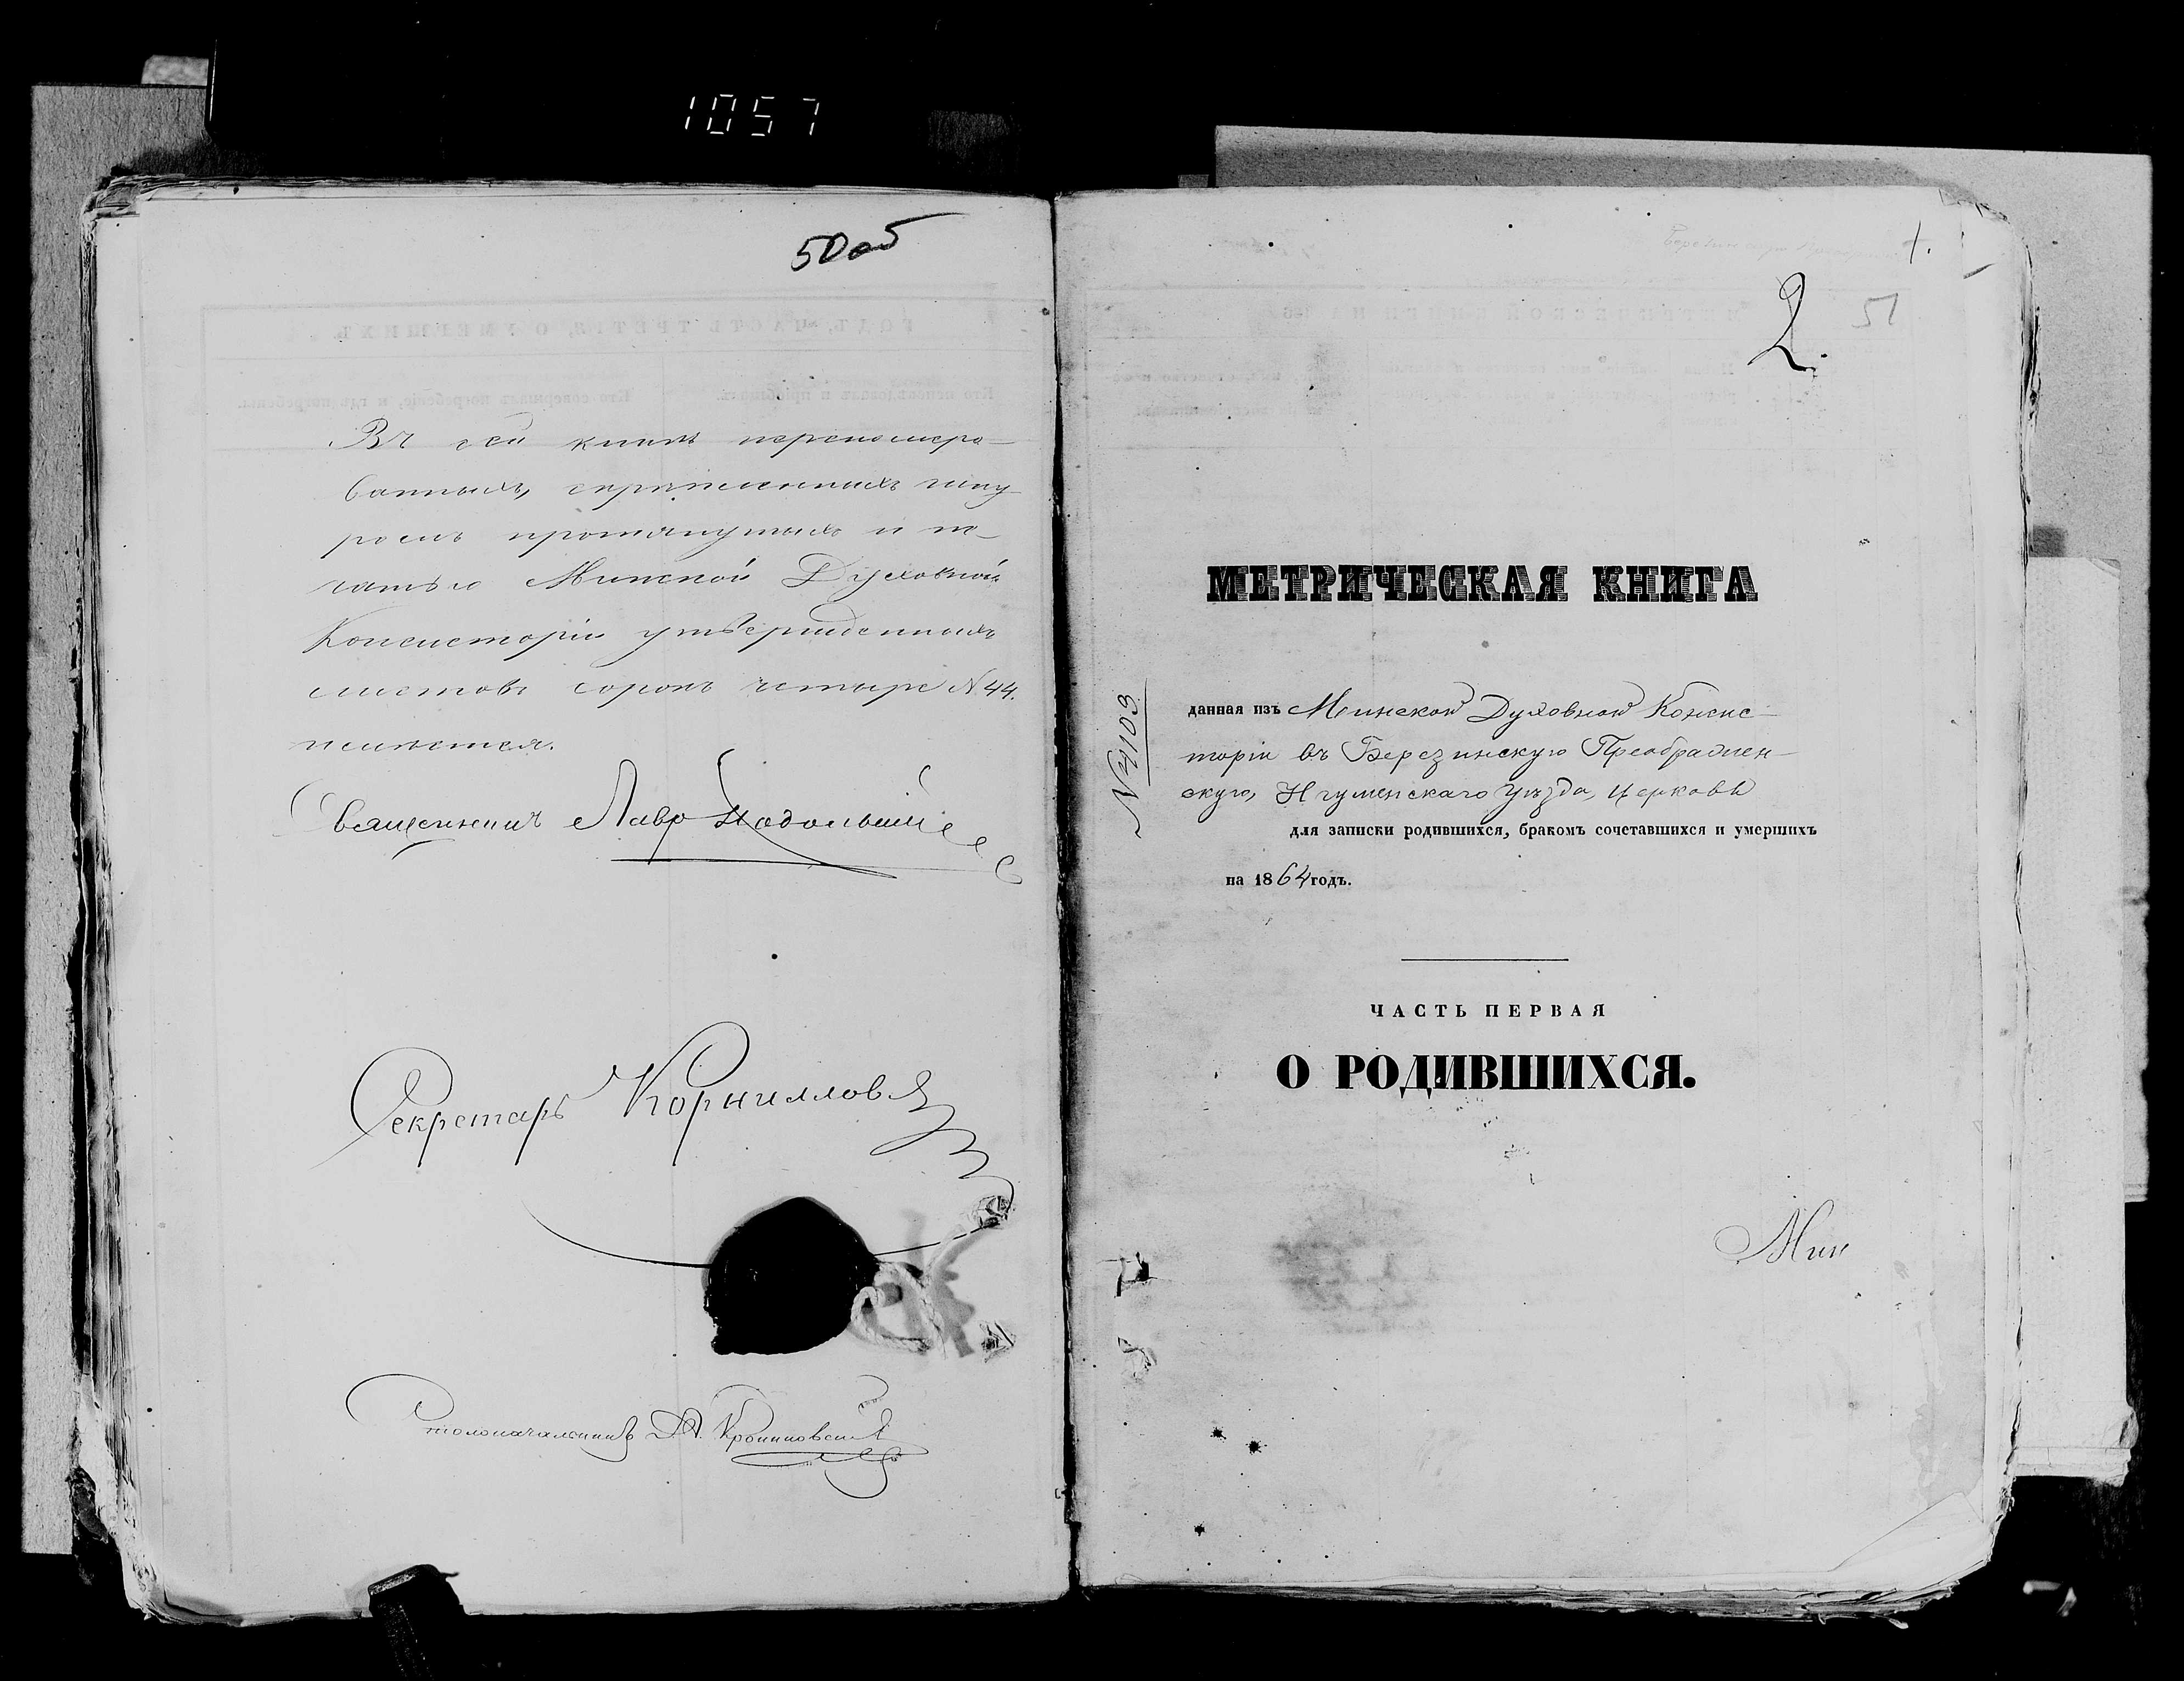 1057
50 об
Въ сей книгѣ перенумеро-
ванныхъ, скрѣпленныхъ шну-
ромъ протянутыхъ и пе-
чатью Минской Духовной
Консисторіи утвержденныхъ
листовъ сорокъ четыре N 44.
числится.
Священникъ Лавр
Секретарь Корнилловъ
Столоначальникъ
1.
2.
51
МЕТРИЧЕСКАЯ КНИГА
N 4103
данная изъ Минской Духовной Консис-
торіи въ Березинскую Преображен-
скую, Игуменскаго Уѣзда, церковь
для записки родившихся, бракомъ сочетавшихся и умершихъ
на 1864 годъ.
ЧАСТЬ ПЕРВАЯ
О РОДИВШИХСЯ.
Мин